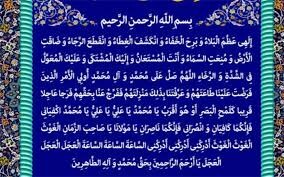 بِسمِ اللّٰهِ الرَّحمنِ الرَّحیمِ
اِلٰهی عَظُمَ البَلاءُ وَ بَرِحَ الخَفاءُ وَ انکَشَفَ الغِطاءُ وَ انقَطَعَ الرَّجاءُ وَ ضاقَتِ
الاَرضُ وَ مُنِعَتِ السَّماءُ وَ اَنتَ المُستَعانُ وَ اِلَیکَ المُشتَکیٰ وَ عَلَیکَ المُعَوَّلُ
فِی الشِّدَّةِ وَ الرَّخاءِ اللّٰهُمَّ صَلِّ عَلیٰ مُحَمَّدٍ وَ آلِ مُحَمَّدٍ اُولِی الاَمرِ الَّذینَ
فَرَضتَ عَلَینا طاعَتَهُم وَ عَرَّفتَنا بِذٰلِکَ مَنزِلَتَهُم فَفَرِّج عَنّا بِحَقِّهِم فَرَجا عاجِلا
قَریبا کَلَمحِ البَصَرِ اَو هُوَ اَقرَبُ یا مُحَمَّدُ یا عَلِیُّ یا عَلِیُّ یا مُحَمَّدُ اِکفِیانی
فَاِنَّکُما کافِیانِ وَ انصُرانی فَاِنَّکُما ناصِرانِ یا مَولانا یا صاحِبَ الزَّمانِ الغَوثَ
الغَوثَ الغَوثَ اَدرِکنی اَدرِکنی اَدرِکنی السّاعَةَ السّاعَةَ السّاعَةَ العَجَلَ العَجَلَ
العَجَلَ یا اَرحَمَ الرّاحِمینَ بِحَقِّ مُحَمَّدٍ وَ آلِهِ الطّاهِرینَ